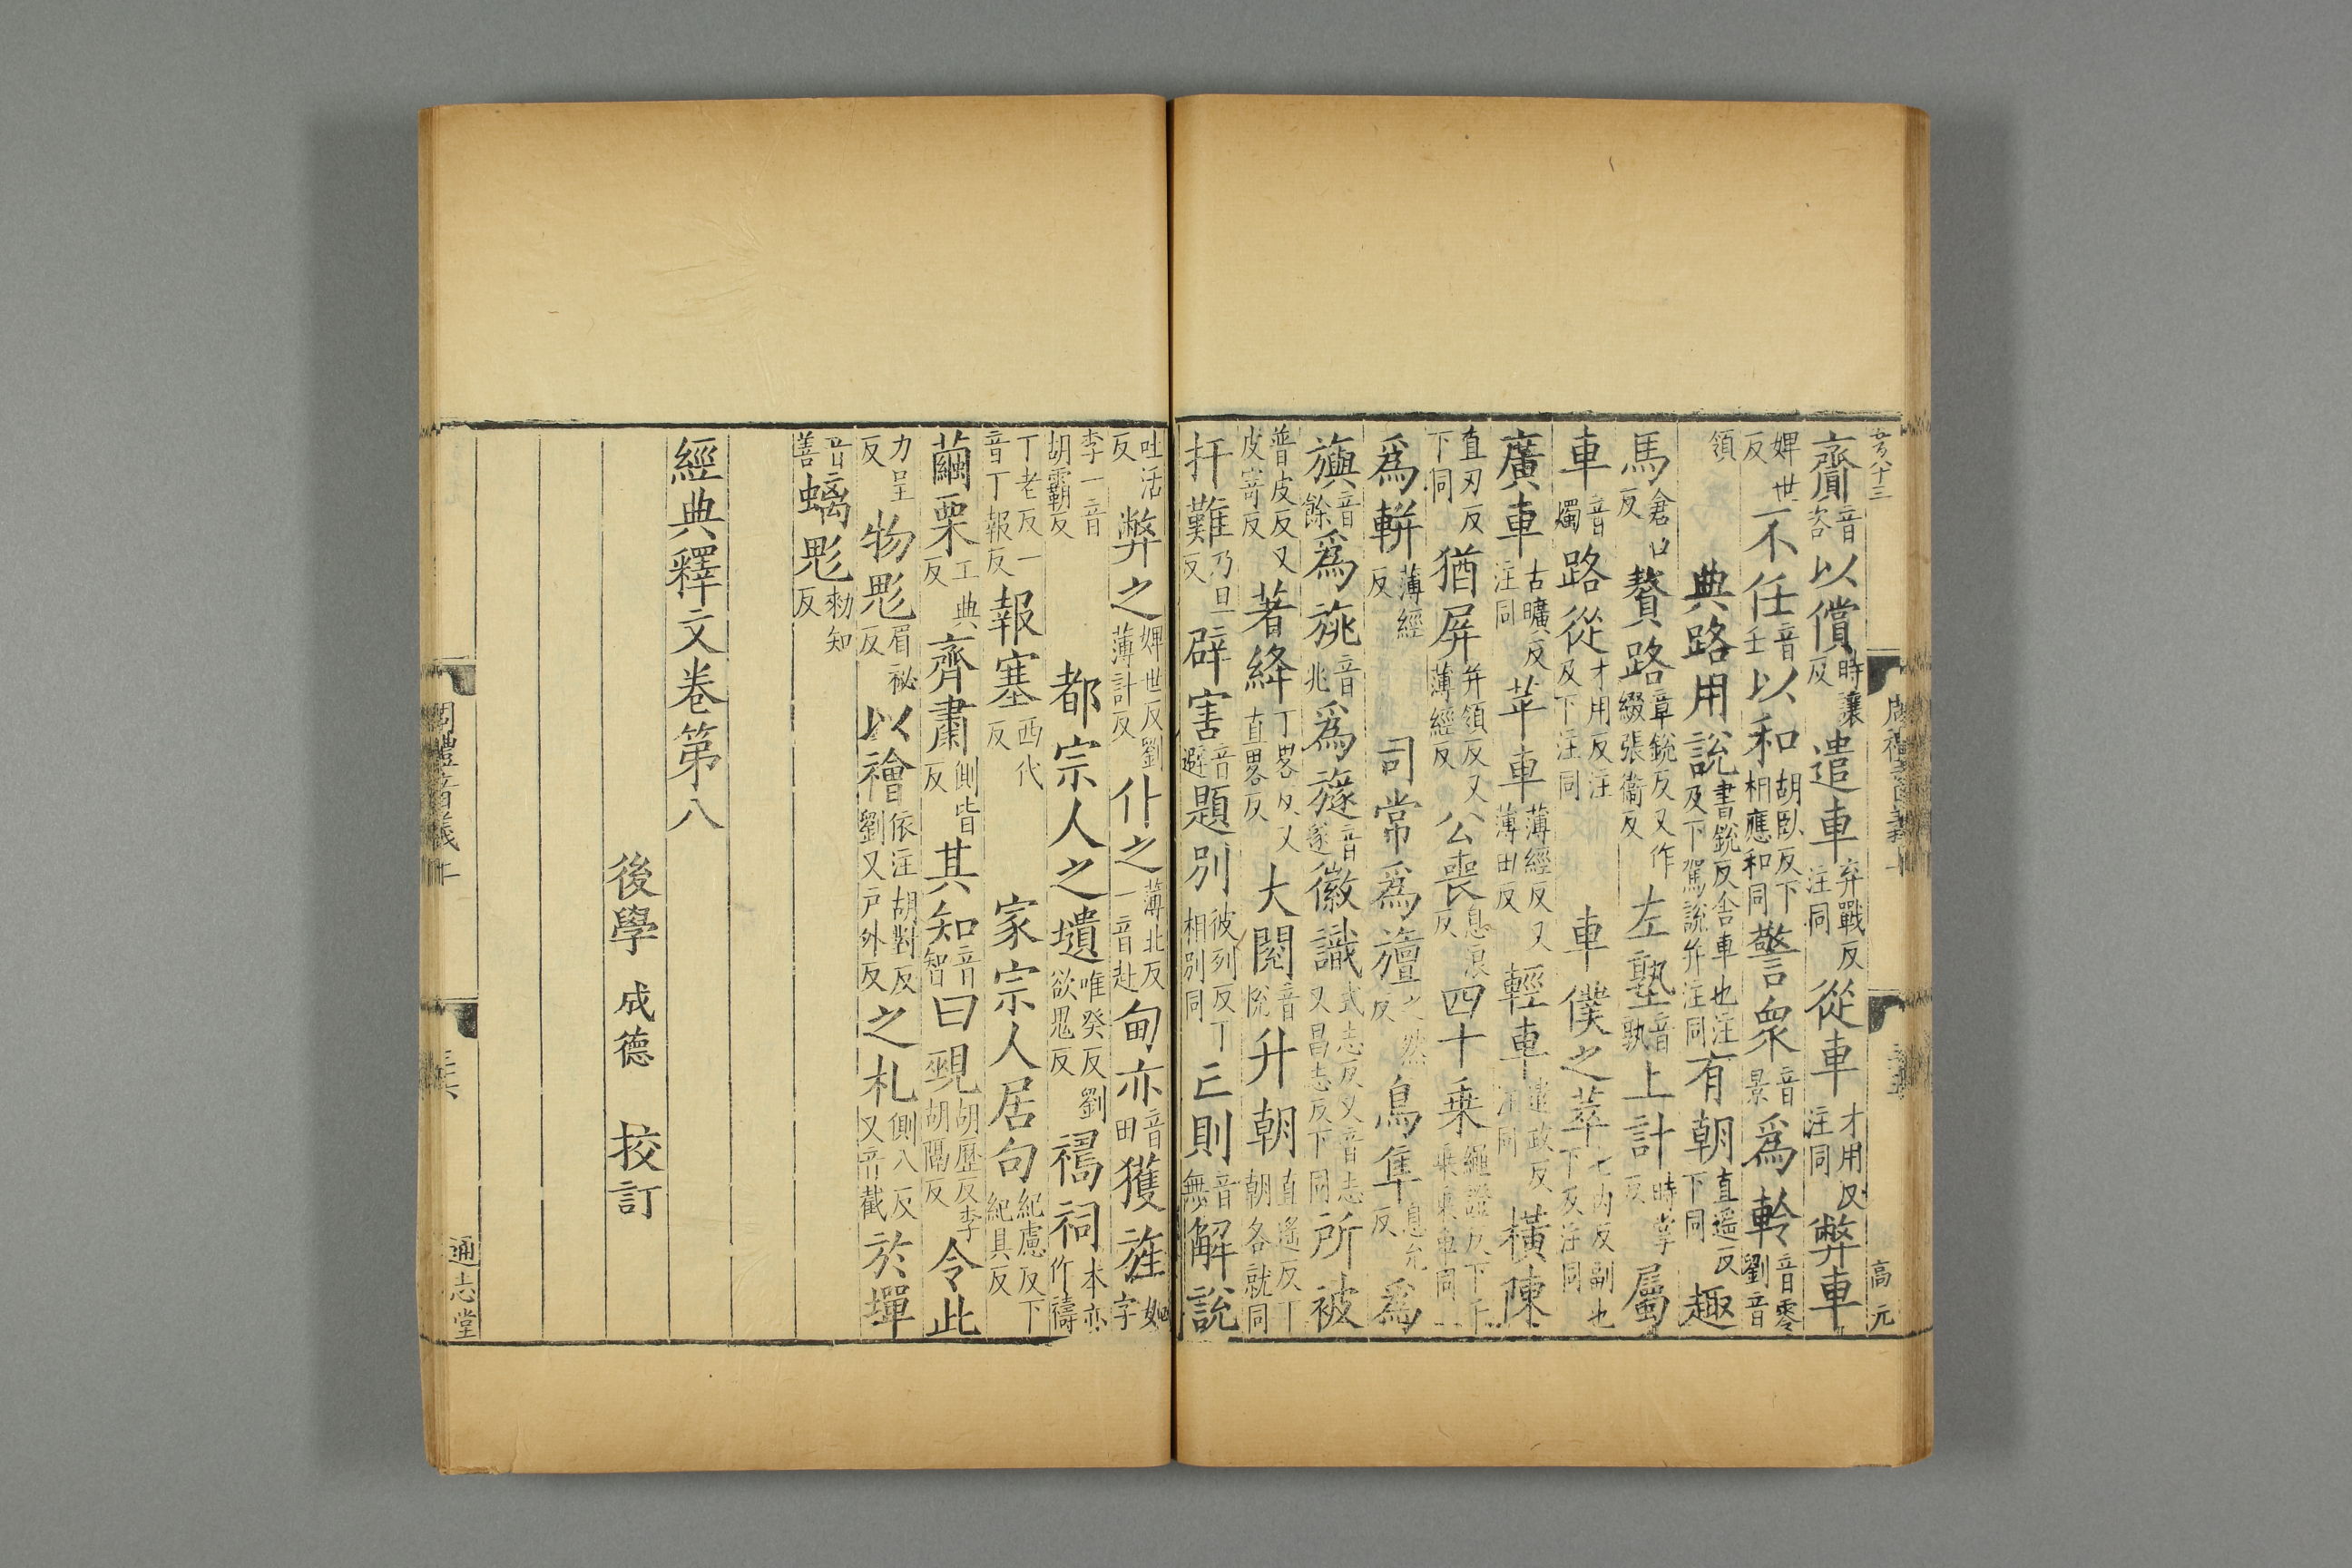 齎音咨以償時讓反遣車弃戰反注同從車才用反注同弊車
婢世反不任音壬以和胡臥反下相應和同警衆音景爲軨音零劉音
領 典路用說書銳反舍車也注及下駕說并注同有朝直遥反下同趣
馬倉口反贅路章銳反又作綴張衞反左塾音孰上計時掌反屬
車音燭路從才用反注及下注同 車僕之萃七內反副也下及注同
廣車古曠反注同苹車薄經反又薄田反輕車遣政反注同橫陳
直刃反下同猶屏并領反又薄經反公喪息浪反四十乗繩證反下
爲軿薄經反 司常爲旜之然反鳥隼息允反爲
旟音餘爲旐音兆爲旞音遂徽識式志反又音志又昌志反下同所被
普皮反又皮寄反著絳丁畧反又直畧反大閱音悅升朝直遥反下朝各就同
扞難乃旦反辟害音避題別彼列反下相別同亡則音無解說
吐活反弊之婢世反劉薄計反仆之薄北反一音赴甸亦音田獲旌
李一音胡霸反 都宗人之壝唯癸反劉欲鬼反禂祠本亦作禱
丁老反一音丁報反報塞西代反 家宗人居句紀慮反下紀具反
繭栗工典反齊肅側皆反其知音智曰覡胡歷反李胡隔反令此
力呈反物鬽眉祕反以禬依注胡對反劉又戶外反之札側八反又音截於墠
音善螭鬽勑知反
經典釋文卷第八
後學 成德 挍訂
周禮音義上
通志堂
高元